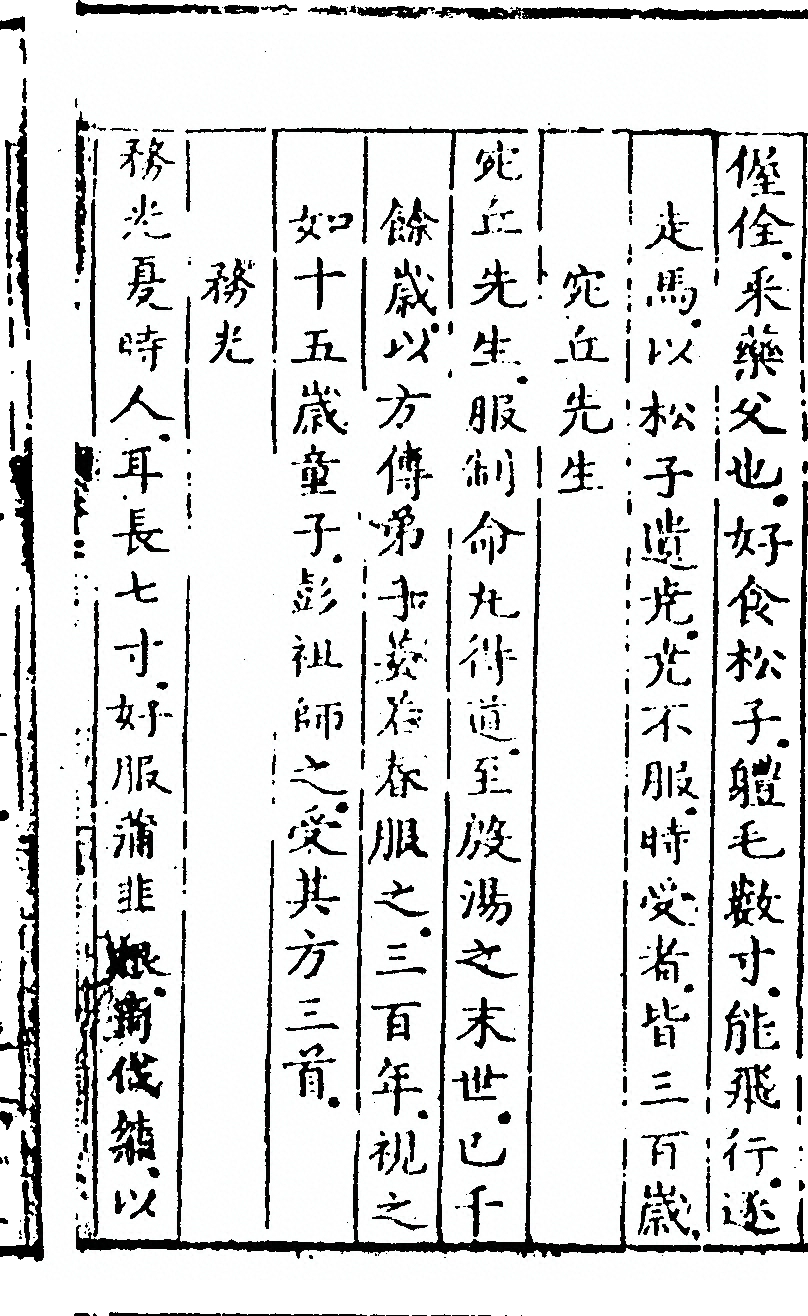 偓佺采藥父也好食松子軆毛數寸能飛行遂
走馬以松子遺尭尭不服時受者皆三百歲
宛丘先生
宛丘先生服制命丸得道至殷湯之末世已千
餘歲以方傳弟子姜若春服之三百年視之
如十五歲童子彭祖師之受其方三首
務光
務光夏時人耳長七寸好服蒲韭根湯伐桀以